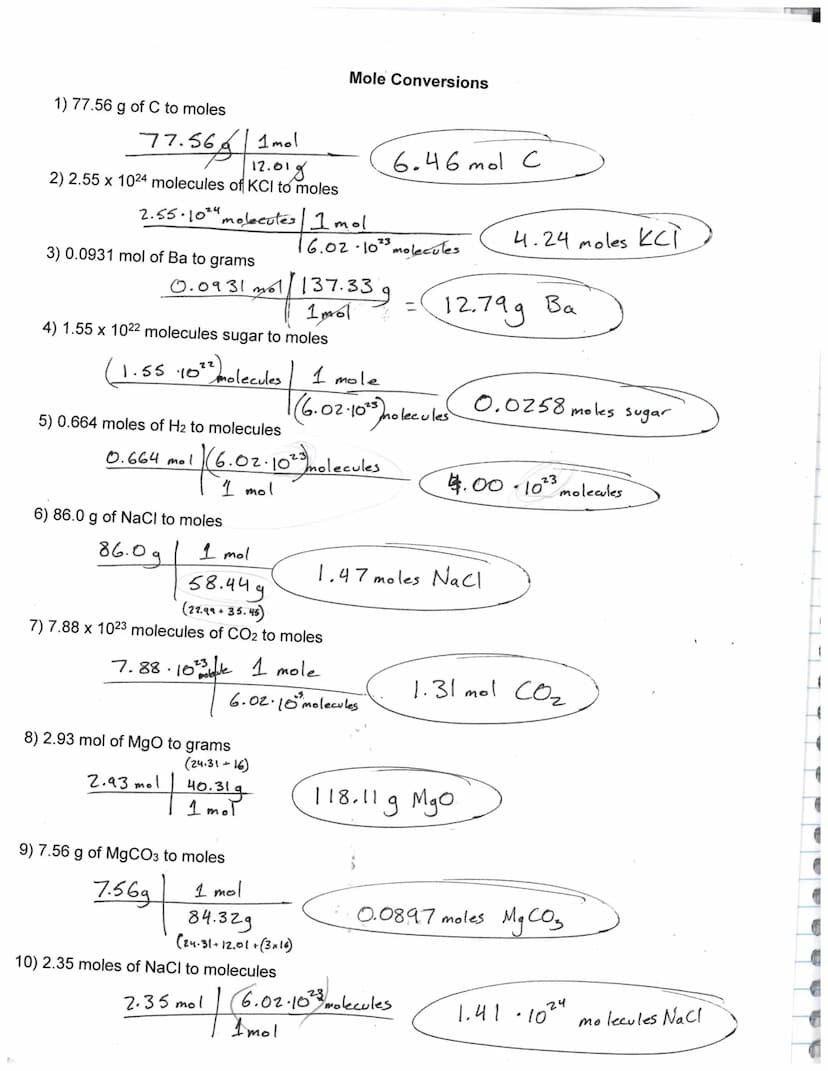 Mole Conversions
1) 77.56 g of C to moles
77.56 g | 1 mol
12.01 g
6.46 mol C
2) 2.55 x 10²⁴ molecules of KCl to moles
2.55 · 10²⁴ molecules | 1 mol
6.02 · 10²³ molecules
4.24 moles KCl
3) 0.0931 mol of Ba to grams
0.0931 mol | 137.33 g
1 mol
= 12.79 g Ba
4) 1.55 x 10²² molecules sugar to moles
(1.55 · 10²²) molecules | 1 mole
(6.02 · 10²³) molecules
0.0258 moles sugar
5) 0.664 moles of H₂ to molecules
0.664 mol | (6.02 · 10²³) molecules
1 mol
4.00 · 10²³ molecules
6) 86.0 g of NaCl to moles
86.0 g | 1 mol
58.44 g
(22.99 + 35.45)
1.47 moles NaCl
7) 7.88 x 10²³ molecules of CO₂ to moles
7.88 · 10²³ molecule | 1 mole
6.02 · 10²³ molecules
1.31 mol CO₂
8) 2.93 mol of MgO to grams
(24.31 + 16)
2.93 mol | 40.31 g
1 mol
118.11 g MgO
9) 7.56 g of MgCO₃ to moles
7.56g | 1 mol
84.32g
(24.31 + 12.01 + (3×16)
0.0897 moles MgCO₃
10) 2.35 moles of NaCl to molecules
2.35 mol | (6.02 · 10²³) molecules
1 mol
1.41 · 10²⁴ molecules NaCl